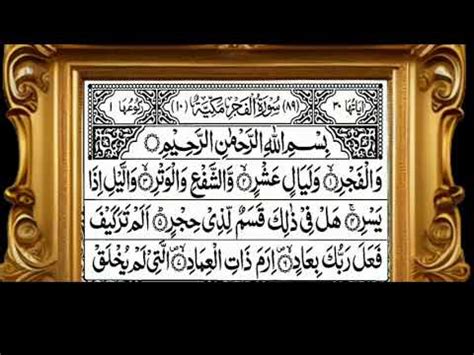 اٰیاتها ٣٠ (٨٩) سُوْرَةُ الْفَجْرِ مَكِّیَّةٌ (١٠) رکوعها ١
بِسْمِ اللّٰهِ الرَّحْمٰنِ الرَّحِیْمِ
وَالْفَجْرِ ۝١ وَلَیَالٍ عَشْرٍ ۝٢ وَّالشَّفْعِ وَالْوَتْرِ ۝٣ وَالَّیْلِ اِذَا
یَسْرِ ۝٤ هَلْ فِیْ ذٰلِكَ قَسَمٌ لِّذِیْ حِجْرٍ ۝٥ اَلَمْ تَرَ كَیْفَ
فَعَلَ رَبُّكَ بِعَادٍ ۝٦ اِرَمَ ذَاتِ الْعِمَادِ ۝٧ الَّتِیْ لَمْ یُخْلَقْ